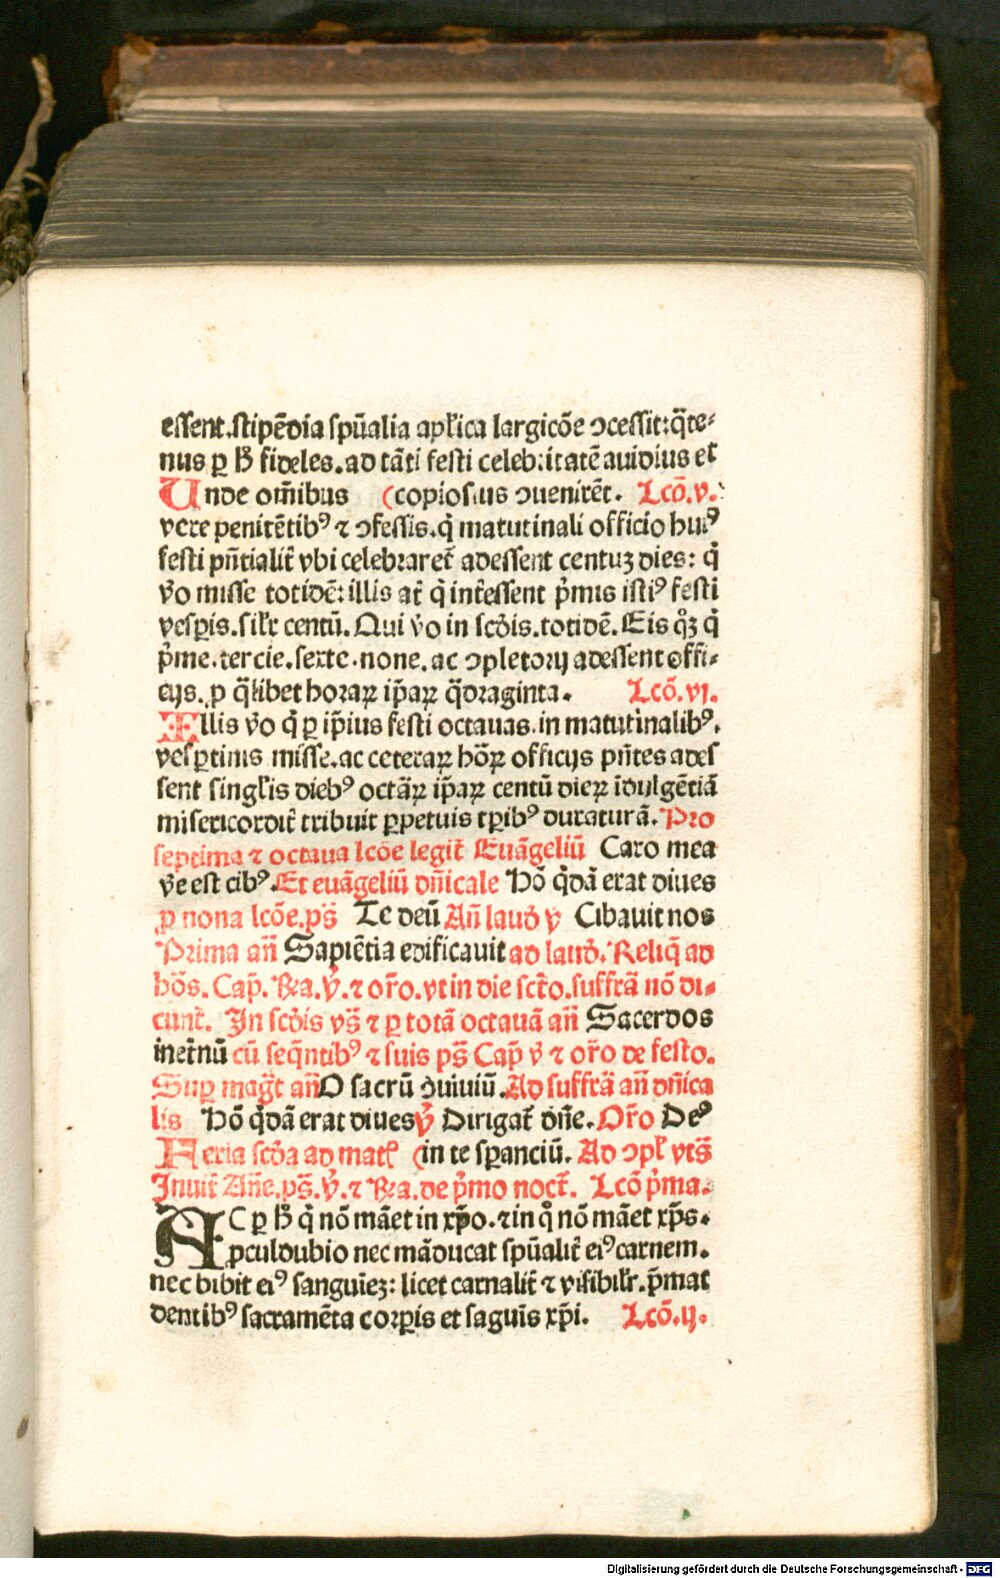 essent.stipēdia spūalia apl'ica largicōe ↄcessit:q̄te⸗
nus ꝑ h̄ fideles.ad tāti festi celebritatē auidius et
Unde om̄ibus (copiosius ↄuenirēt. Lcō.v.
vere penitētibꝰ ⁊ ↄfessis.q̇ matutinali officio huiꝰ
festi pn̄tialit̄ vbi celebraret̄ adessent centuꝫ dies: q̇
v̇o misse totidē:illis at̄ q̇ int̄essent p̄mis istiꝰ festi
vesꝑis.sil'r centū. Qui v̇o in scḋis.totidē. Eis qꝫ q̇
p̄me.tercie.sexte.none.ac ↄpletorij adessent offi⸗
cijs.ꝓ q̄libet horaꝝ ip̄aꝝ q̄draginta. Lcō.vj.
Illis v̇o q̇ ꝑ ip̄ius festi octauas.in matutinalibꝰ.
vesꝑtinis misse.ac ceteraꝝ hōꝝ officijs pn̄tes ades
sent singl'is diebꝰ octāꝝ ip̄aꝝ centū dieꝝ īdulgētiā
misericordit̄ tribuit ꝑpetuis tꝑibꝰ duraturā. Pro
septima ⁊ octaua lcōe legit̄ Euāgeliū Caro mea
v̄e est cibꝰ. Et euāgeliū dn̄icale Hō q̄dā erat diues
ꝓ nona lcōe.ps̄ Te deū An̄ laud̄ v̇ Cibauit nos
Prima an̄ Sapiētia edificauit ad laud̄. Reliq̄ ad
hōs. Cap̄. Ra.v̇.⁊ or̄o.vt in die sct̄o.suffrā nō di⸗
cunt̄. In scḋis vs̄ ⁊ ꝑ totā octauā an̄ Sacerdos
inet̄nū cū seq̄ntibꝰ ⁊ suis ps̄ Cap̄ v̇ ⁊ or̄o de festo.
Suꝑ maḡt an̄ O sacrū ↄuiuiū. Ad suffrā an̄ dn̄ica
lis Hō q̄dā erat diues v̇ Dirigat̄ dn̄e. Or̄o Deꝰ
Feria scḋa ad mat̄ (in te sꝑanciū. Ad ↄpl' vts̄
Inuit̄ An̄e.ps̄.v̇.⁊ Ra.de p̄mo noct̄. Lcō p̄ma.
AC ꝑ h̄ q̇ nō māet in xp̄o.⁊ in q̇ nō māet xp̄s.
ꝓculdubio nec māducat spūalit̄ eiꝰ carnem.
nec bibit eiꝰ sanguīeꝫ: licet carnalit̄ ⁊ visibil'r.p̄mat
dentibꝰ sacramēta corꝑis et sāguīs xp̄i. Lcō.ij.
Digitalisierung gefördert durch die Deutsche Forschungsgemeinschaft - DFG